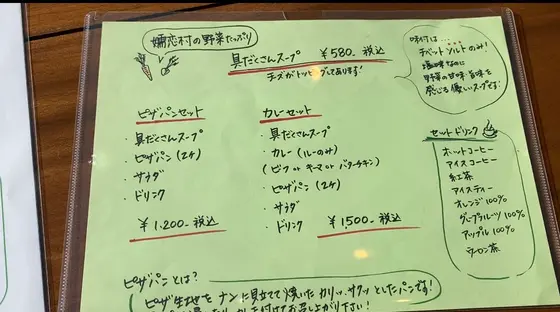 嬬恋村の野菜たっぷり
具だくさんスープ ¥580.税込
チーズがトッピングしてあります!
味付は...
チベットソルトのみ!
塩味なのに
野菜の甘味・旨味を
感じる優しいスープです!
ピザパンセット
・具だくさんスープ
・ピザパン(2ケ)
・サラダ
・ドリンク
¥1,200-税込
カレーセット
・具だくさんスープ
・カレー(ルーのみ)
(ビーフ or キーマ or バターチキン)
・ピザパン(2ケ)
・サラダ
・ドリンク
¥1,500-税込
セットドリンク
ホットコーヒー
アイスコーヒー
紅茶
アイスティー
オレンジ100%
グレープフルーツ100%
アップル100%
ウーロン茶
ピザパンとは?
ピザ生地をナンに見立てて焼いたカリッ、サクッとしたパンです!
付けてお召し上がり下さい!